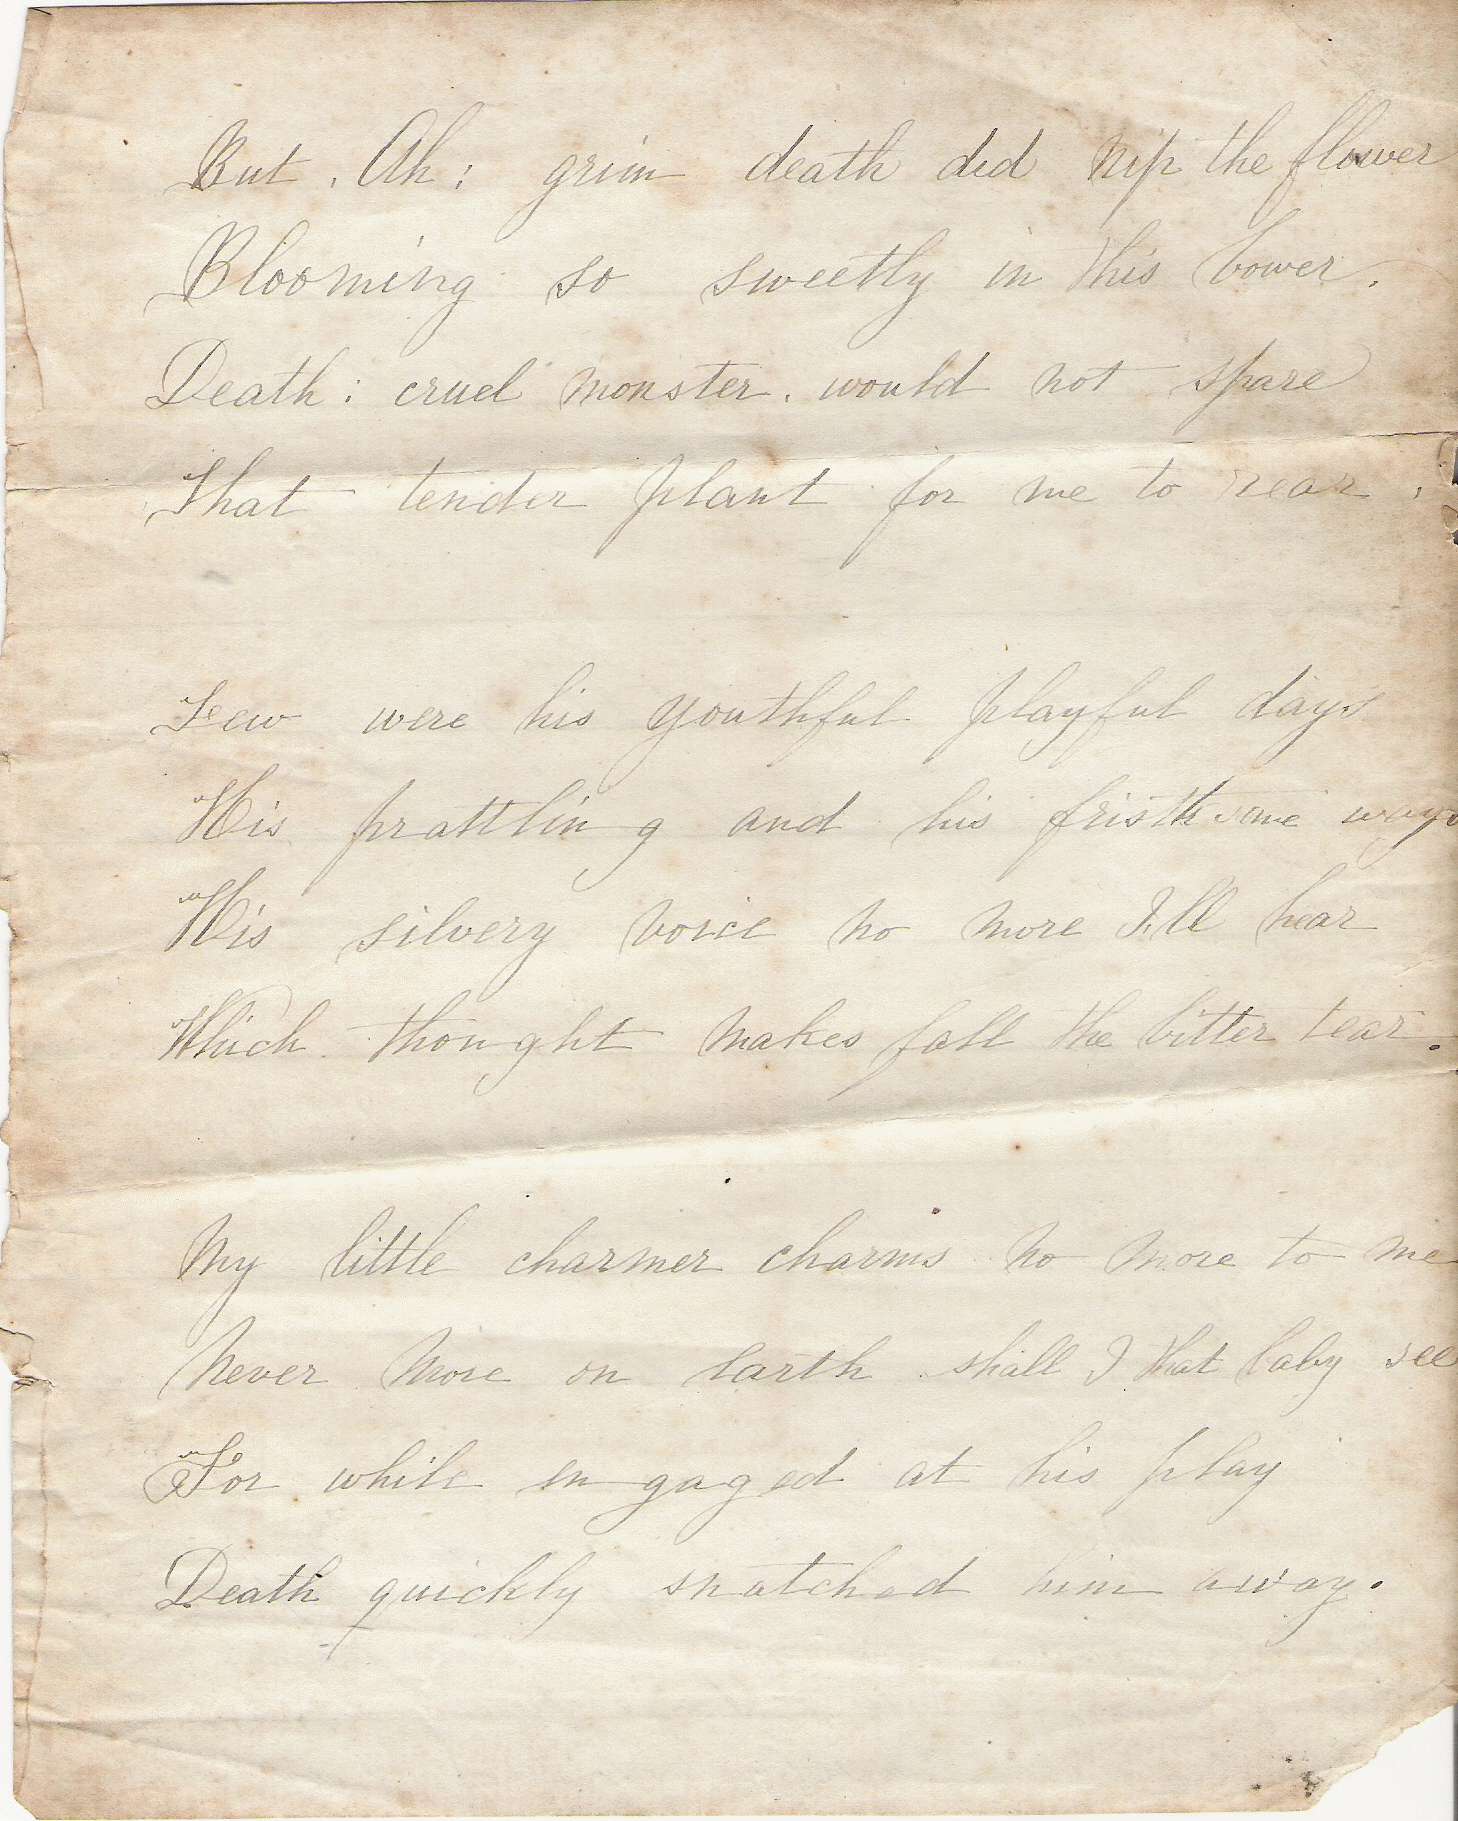 But, Ah; grim death did nip the flower
Blooming so sweetly in this bower,
Death; cruel monster. would not spare
That tender plant for me to rear,
Few were his youthful playful days
His prattling and his ways
His silvery voice no more I'll hear
Which thought makes fall the bitter tear.
My little charmer charms no more to me
Never more on earth shall I that baby see
For while engaged at his play
Death quickly snatched him away.